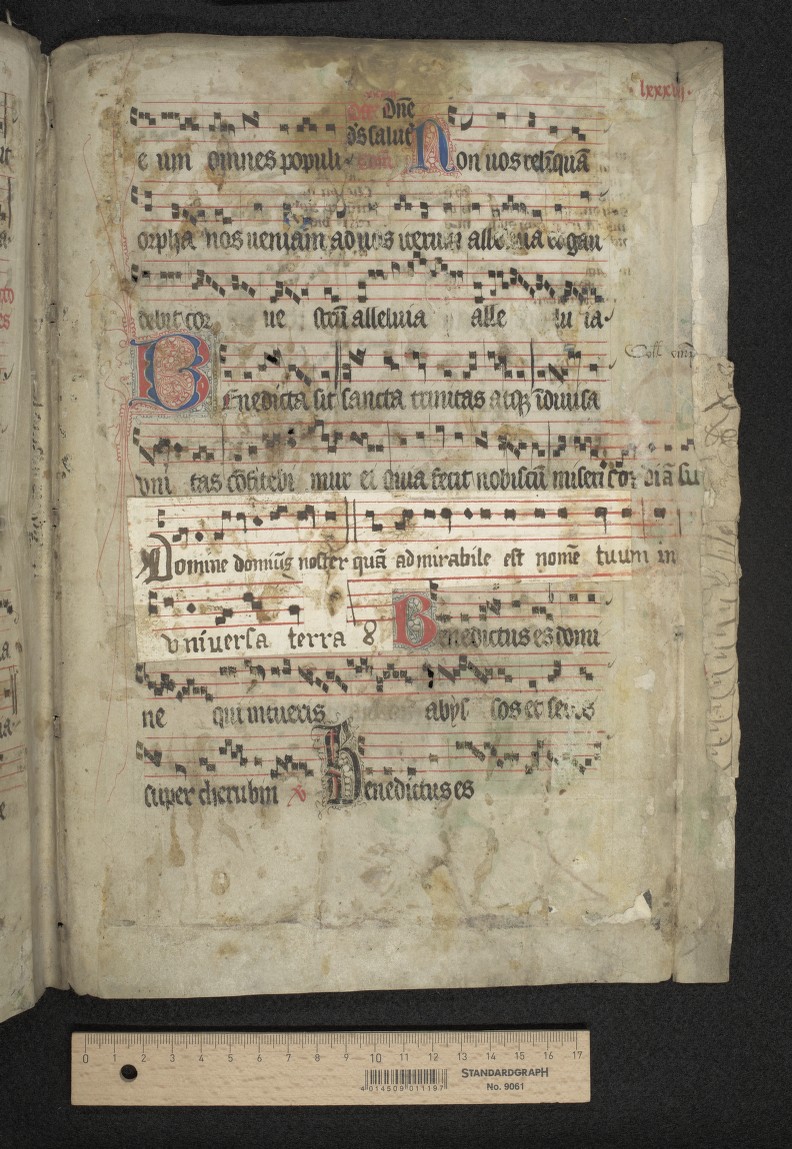 lxxxvij.
Dñe
ds salut
e um omnes populi Non uos relĩquã
orpha nos ueniam ad uos iterum alleluia et gau
debit cor ue strũ alleluia alle lu ia.
Benedicta sit sancta trinitas atqꝫ ĩdiuisa
vni tas cõfitebi mur ei quia fecit nobiscũ miseri cor diã su
Domine domiũs noster quã admirabile est nomẽ tuum in
vniuersa terra 8 Benedictus es domi
ne qui intueris abys sos et sedes
super cherubin Benedictus es
0 1 2 3 4 5 6 7 8 9 10 11 12 13 14 15 16 17
STANDARDGRAPH
No. 9061
4 014509 011197